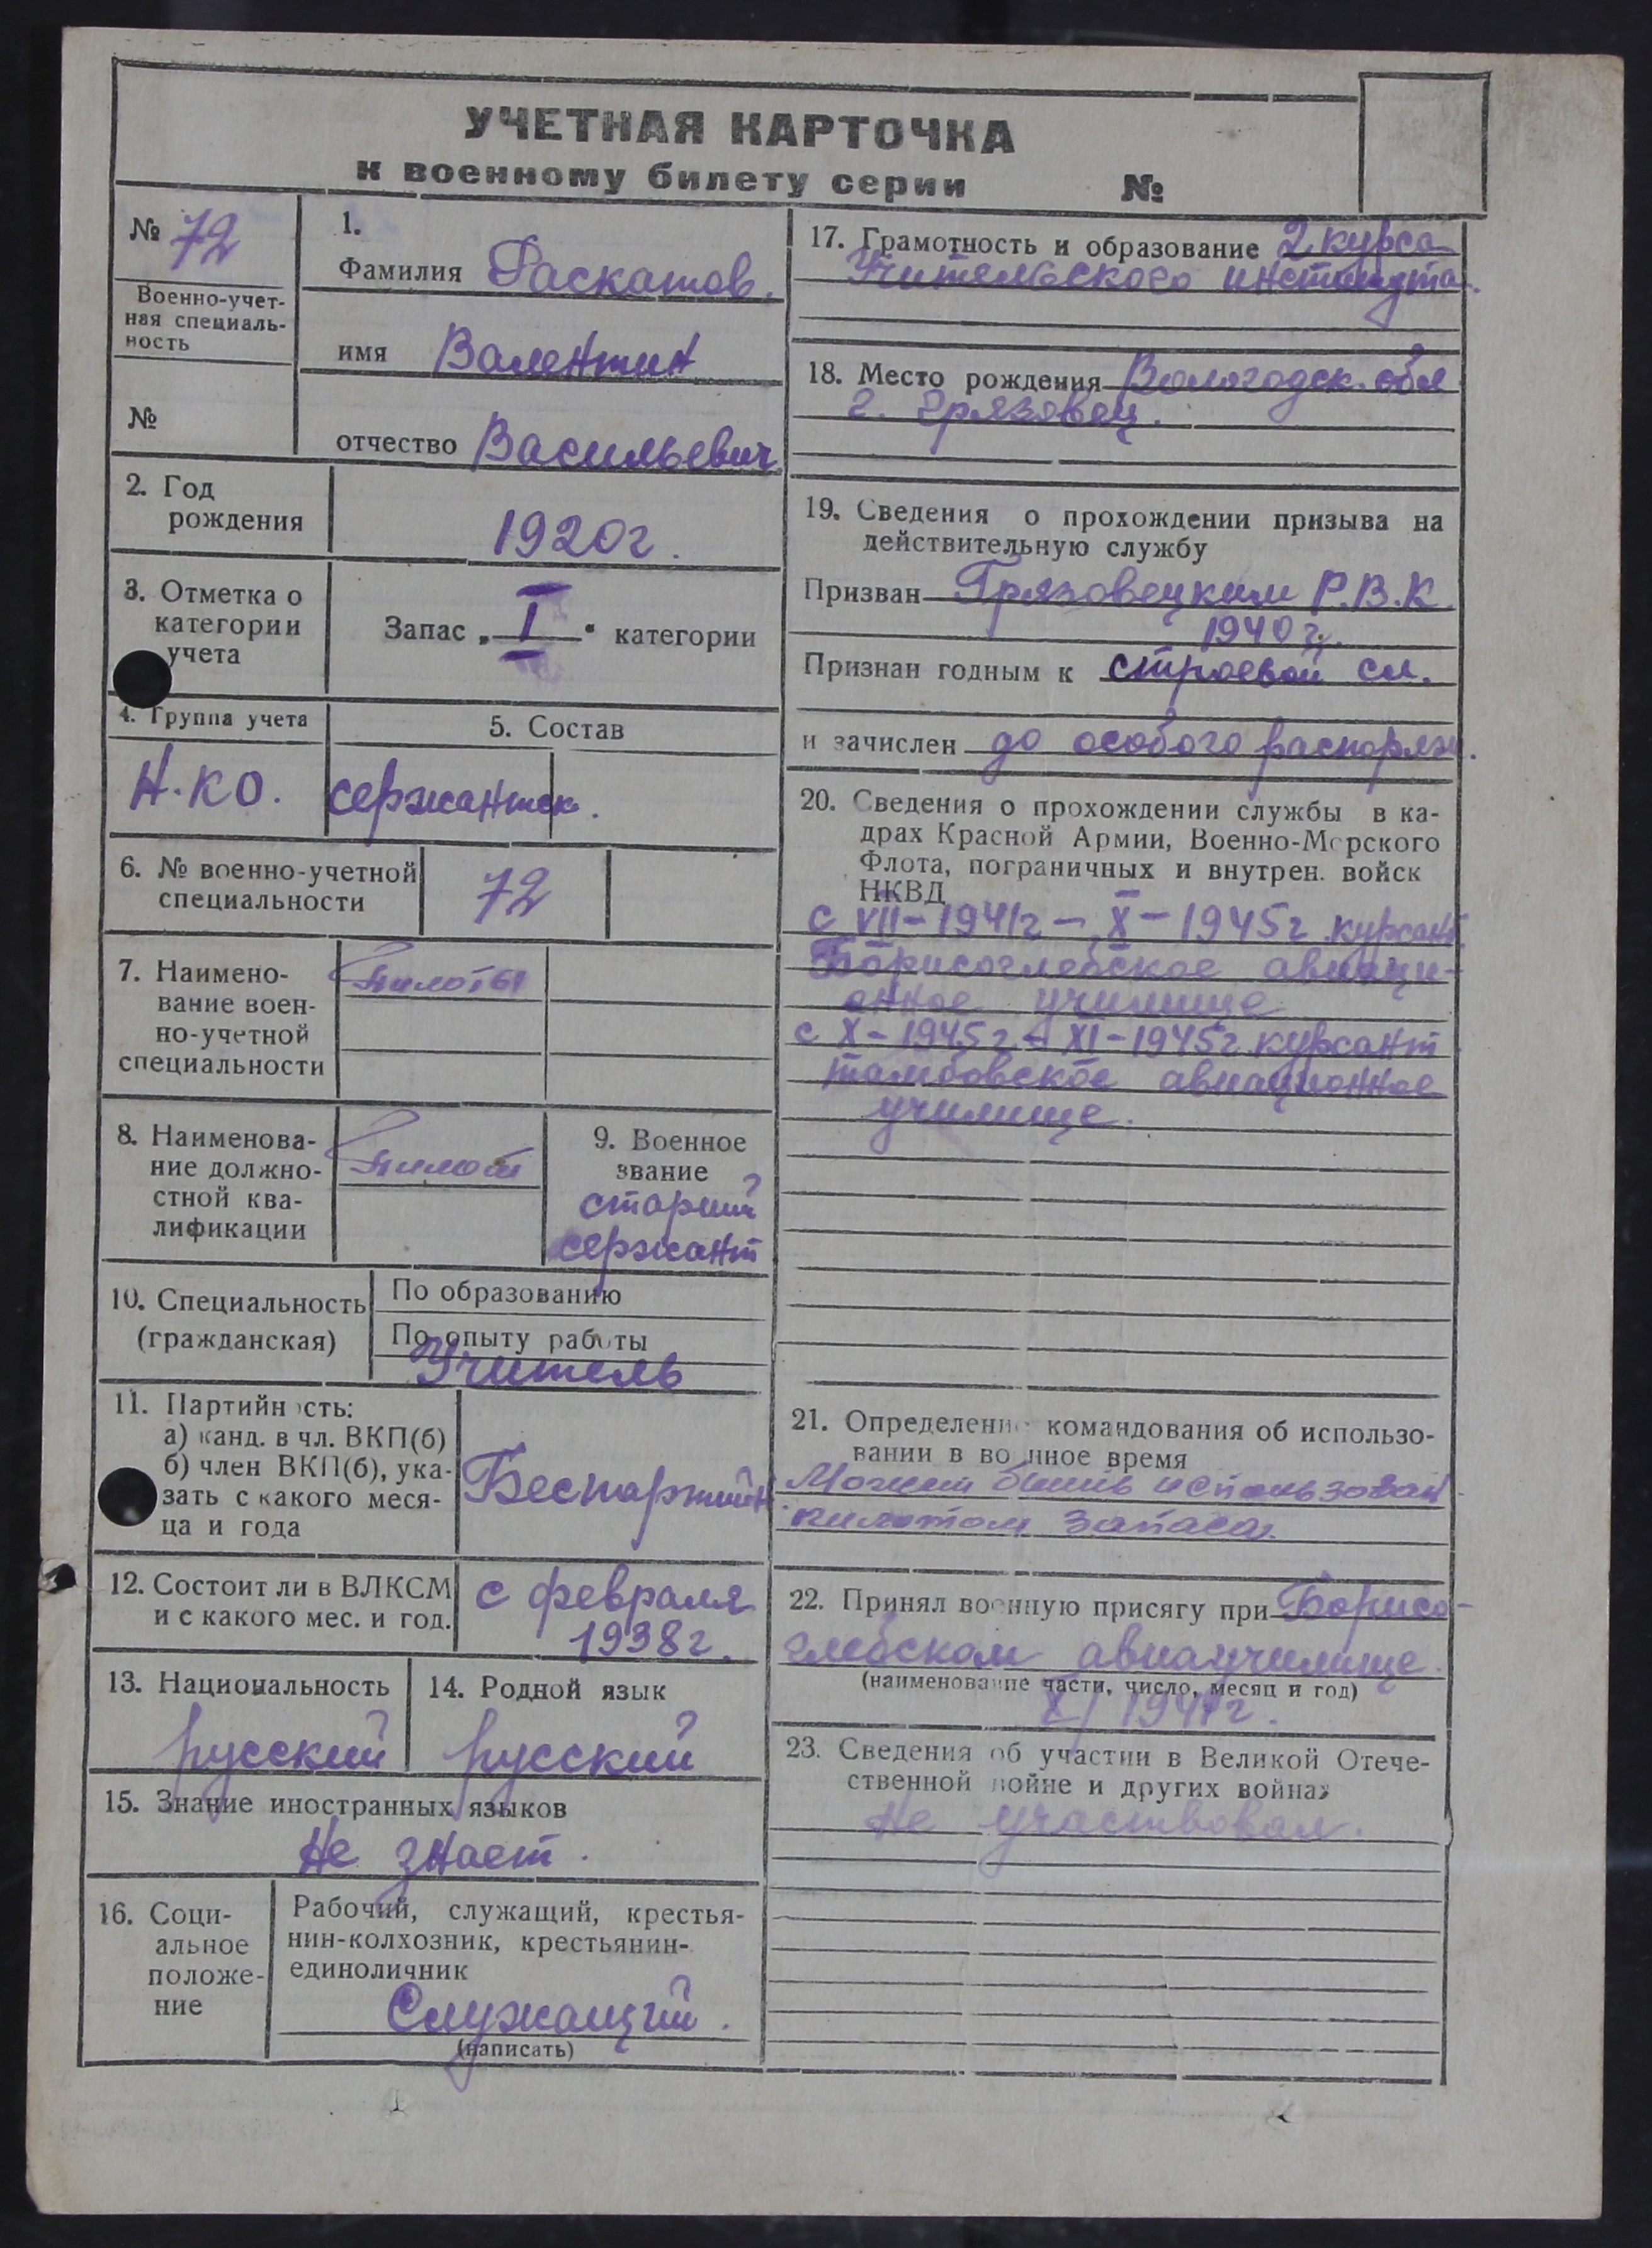 УЧЕТНАЯ КАРТОЧКА
к военному билету серии №
№ 72
Военно-учет-
ная специаль-
ность
№
1.
Фамилия Раскатов.
имя Валентин
отчество Васильевич
2. Год
рождения
1920г.
3. Отметка о
категории
учета
Запас „ I " категории
4. Группа учета
Н.К.О.
5. Состав
сержантск.
6. № военно-учетной
специальности
72
7. Наимено-
вание воен-
но-учетной
специальности
Пилоты
8. Наименова-
ние должно-
стной ква-
лификации
Пилот
9. Военное
звание
старший
сержант
10. Специальность
(гражданская)
По образованию
По опыту работы
Учитель
11. Партийность:
а) канд. в чл. ВКП(б)
б) член ВКП(б), ука-
зать с какого меся-
ца и года
Беспартийн
12. Состоит ли в ВЛКСМ
и с какого мес. и год.
с февраля
1938г.
13. Национальность
русский
14. Родной язык
русский
15. Знание иностранных языков
Не знает.
16. Соци-
альное
положе-
ние
Рабочий, служащий, крестья-
нин-колхозник, крестьянин-
единоличник
Служащий.
(написать)
17. Грамотность и образование 2 курса
Учительского института.
18. Место рождения Вологодск. обл
г. Грязовец.
19. Сведения о прохождении призыва на
действительную службу
Призван Грязовецким Р.В.К.
1940г.
Признан годным к строевой сл.
и зачислен до особого распоряж.
20. Сведения о прохождении службы в ка-
драх Красной Армии, Военно-Морского
Флота, пограничных и внутрен. войск
НКВД
с VII-1941г - X-1945г курсант
Борисоглебское авиаци-
онное училище
с X-1945г - XI-1945г курсант
тамбовское авиационное
училище.
21. Определение командования об использо-
вании в военное время
Может быть использован
пилотом запаса.
22. Принял военную присягу при Борисо-
глебском авиаучилище.
(наименование части, число, месяц и год)
X/ 1941г.
23. Сведения об участии в Великой Отече-
ственной войне и других войнах
Не участвовал.